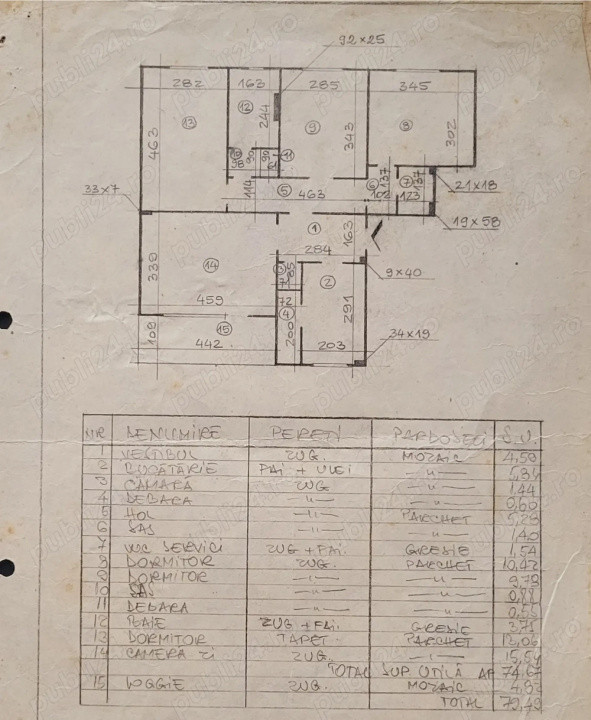 92×25
282 163 285 345
13 12 9 8
463 244 343 302
10 98 90 90 11
114 5 463 6 137 102 7 137 123
21×18
33×7
19×58
1
284 163
14 330 3 85 2
9×40
459 72 4
15 291
109 442 200 203
34×19
NR DENUMIRE PERETI PARDOSELI S.U.
1 VESTIBUL ZUG. MOZAIC 4,59
2 BUCĂTĂRIE FAI + ULEI —"—
3 CAMARA ZUG —"— 1.44
4 DEBARA —"— —"— 0,60
5 HOL —"— PARCHET 5,28
6 SAS —"— —"— 1,40
7 WC SERVICI ZUG + FAI. GRESIE 1,54
8 DORMITOR ZUG. PARCHET 10,42
9 DORMITOR —"— —"— 9,78
10 SAS —"— —"— 0,88
11 DEBARA —"— —"— 0,55
12 BAIE ZUG. + FAI. GRESIE 3,71
13 DORMITOR TAPET. PARCHET 13,06
14 CAMERA ZI ZUG. —"— 15,54
TOTAL SUP UTILĂ AP 74,67
15 LOGGIE ZUG. MOZAIC 4,82
TOTAL 79,49
publi24.ro